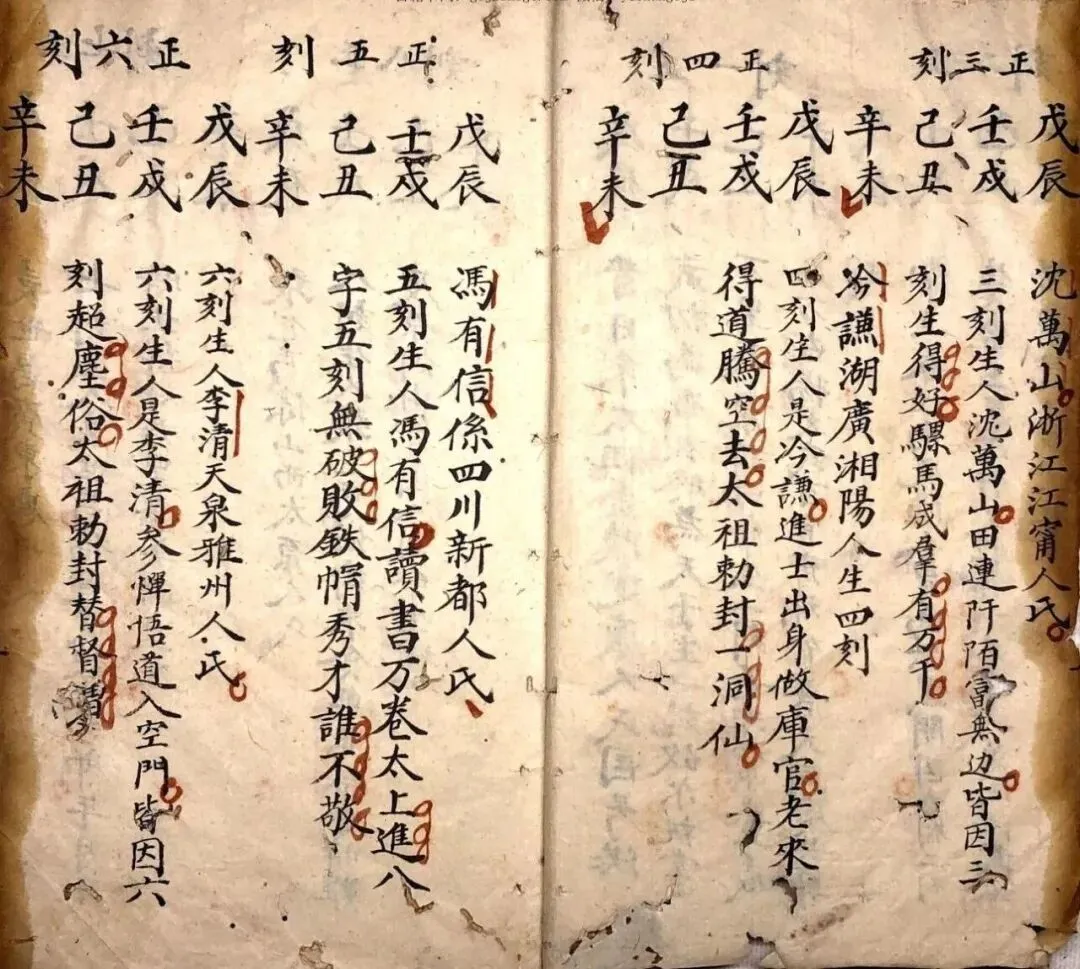 正三刻
戊辰
壬戌
己丑
辛未
沈萬山浙江江甯人氏
三刻生人沈萬山田連阡陌富無边皆因三
刻生得好騾馬成羣有万千
正四刻
戊辰
壬戌
己丑
辛未
冷謙湖廣湘陽人生四刻
四刻生人是冷謙進士出身做庫官老來
得道騰空去太祖勅封一洞仙
正五刻
戊辰
壬戌
己丑
辛未
馮有信係四川新都人氏
五刻生人馮有信讀書万卷太上進八
字五刻無破敗鉄帽秀才誰不敬
正六刻
戊辰
壬戌
己丑
辛未
六刻生人李清天泉雅州人氏
六刻生人是李清參憚悟道入空門皆因六
刻超塵俗太祖勅封替督